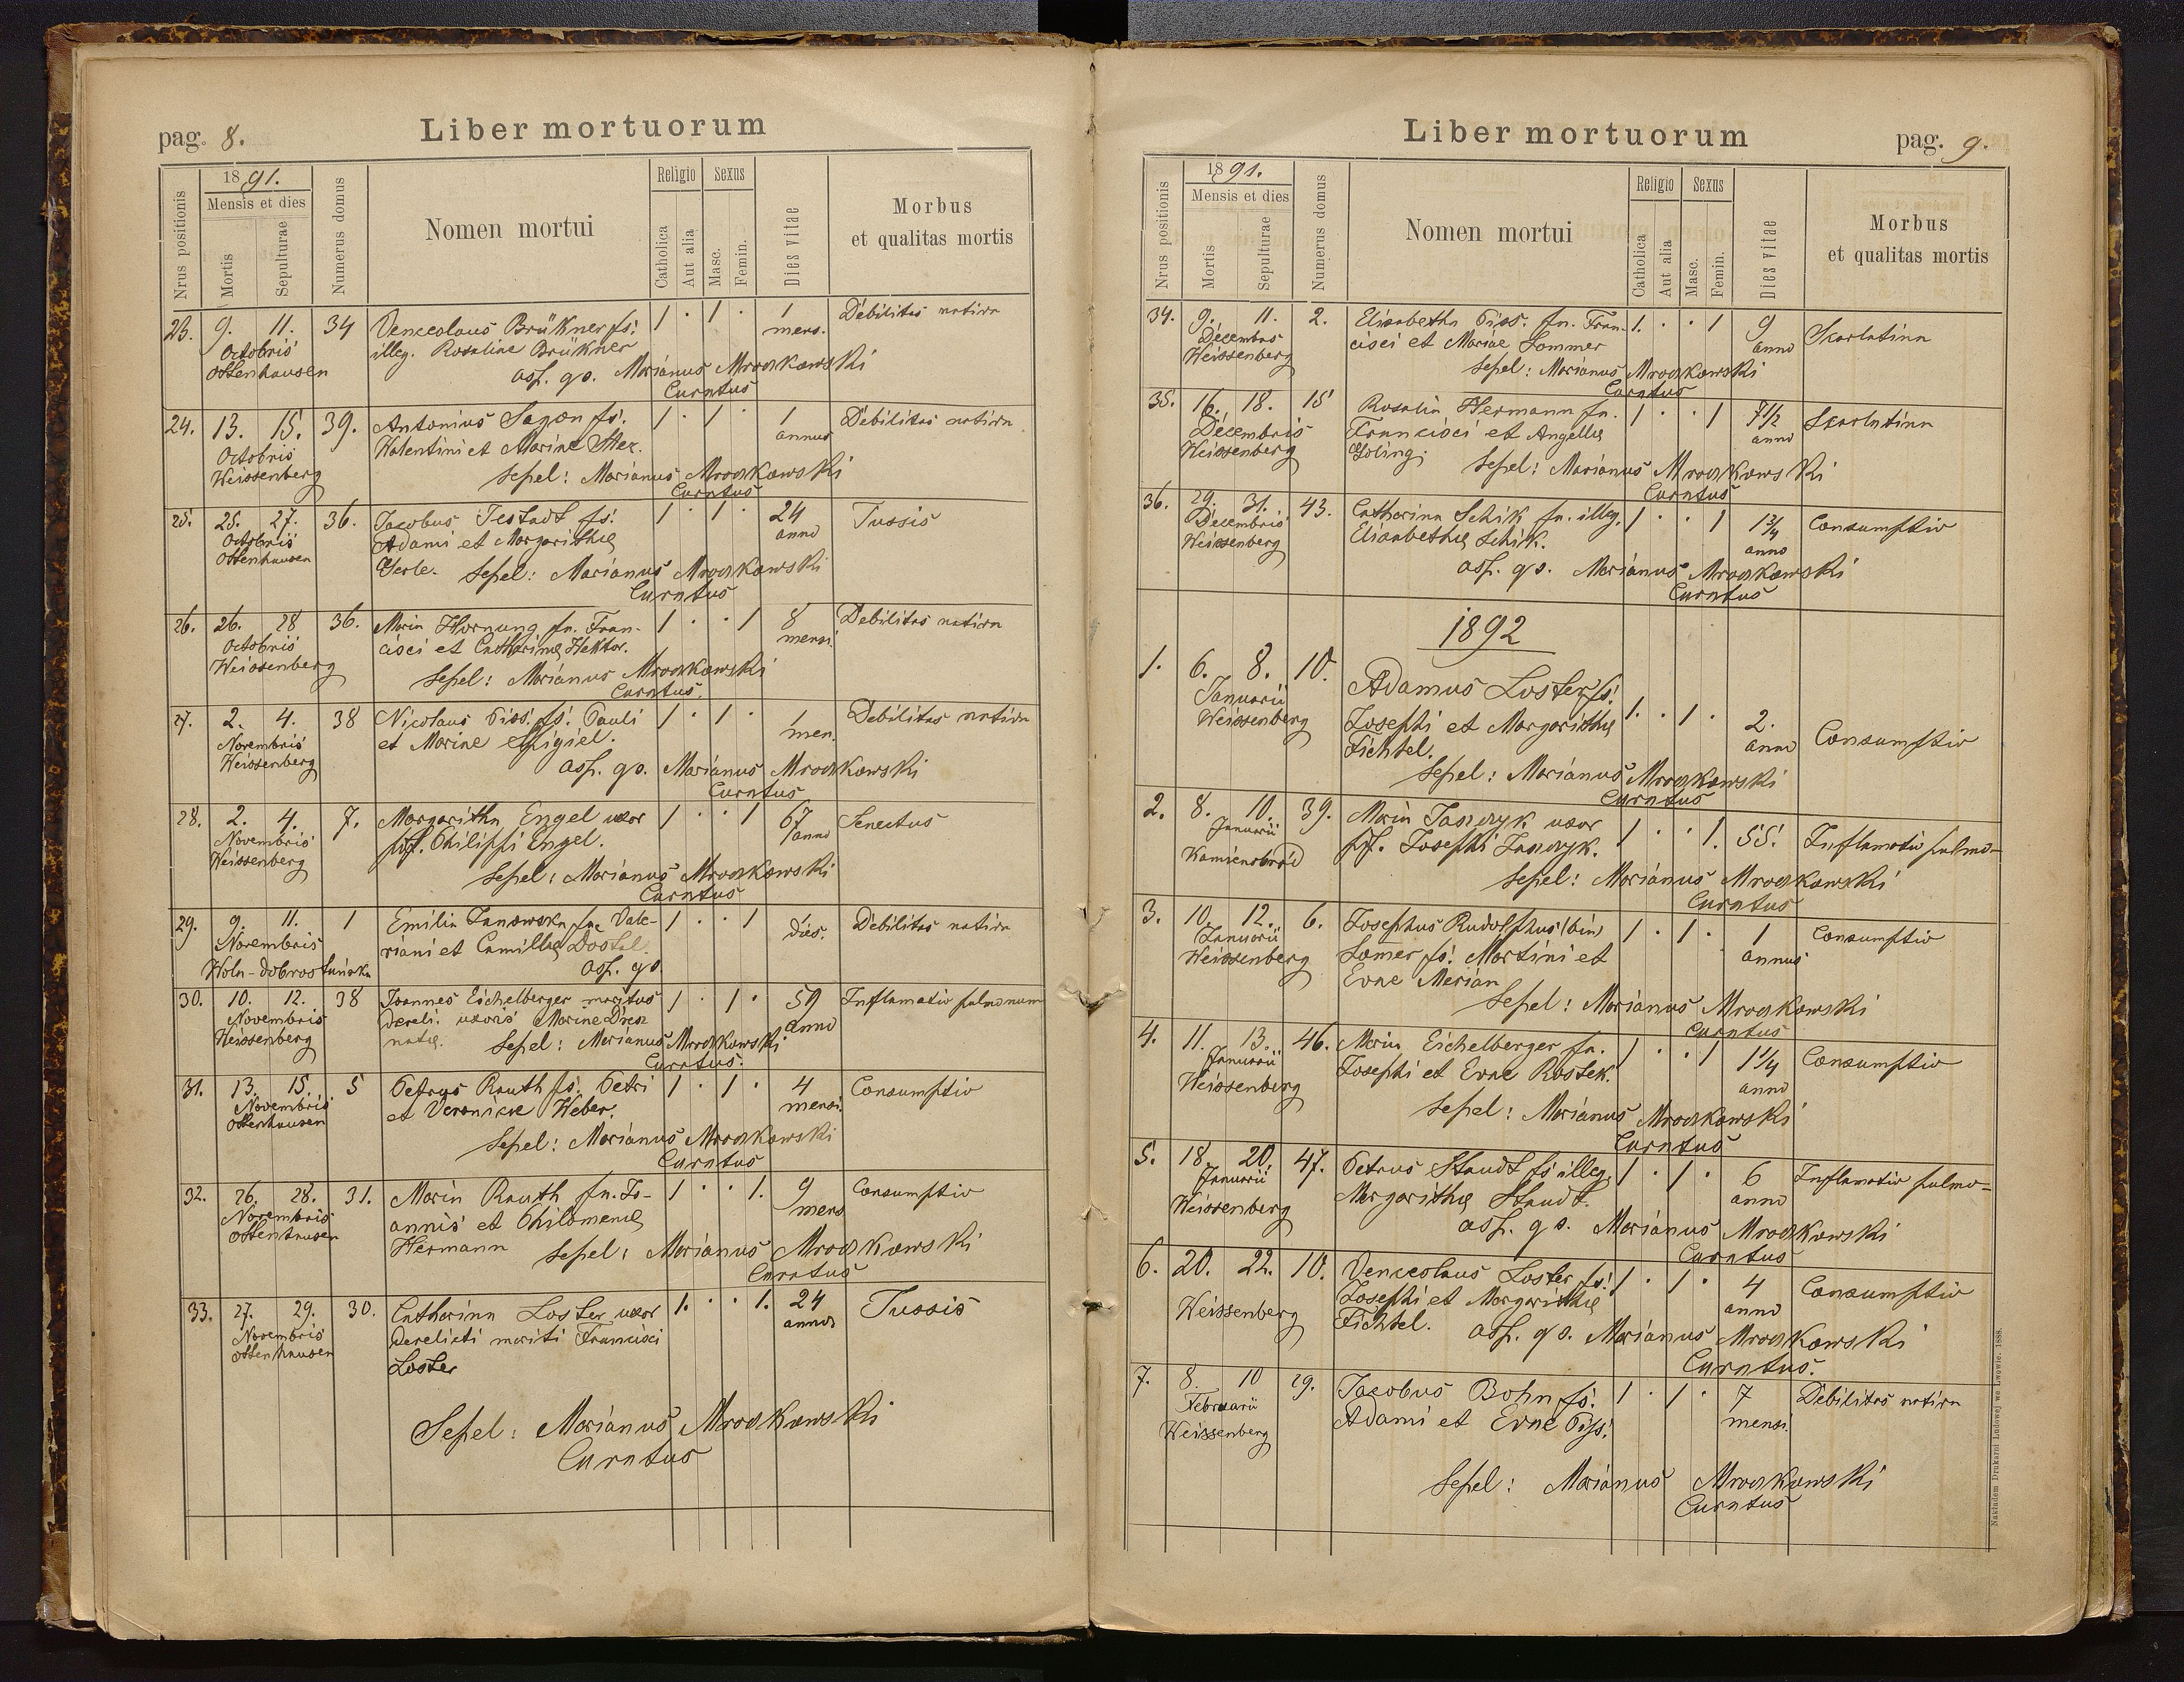 pag. 8.
Liber mortuorum
Nrus positionis
1891.
Mensis et dies
Mortis
Sepulturae
Numerus domus
Nomen mortui
Religio
Catholica
Aut alia
Sexus
Masc.
Femin.
Dies vitae
Morbus
et qualitas mortis
23. 9. 11. 34 Venceslaus Brükner fs. 1 · 1 · 1 Debilitas nativa
Octobris illeg. Rosaline Brükner mens.
Ottenhausen asp. gs. Marianus Mroczkowski
Curatus
24. 13. 15. 39. Antonius Sagan fs. 1 · 1 · 1 Debilitas nativa
Octobris Walentini et Mariae annus
Weissenberg Sepel: Marianus Mroczkowski
Curatus
25. 25. 27. 36. Jacobus Testadt fs. 1 · 1 · 24 Tussis
Octobris Adami et Margarithae anno
Ottenhausen Gerle. Sepel: Marianus Mroczkowski
Curatus
26. 26. 28 36. Maria Hornung fa. Fran- 1 · · 1 8 Debilitas nativa
Octobris cisci et Catharinae Hektor. mensi.
Weissenberg Sepel: Marianus Mroczkowski
Curatus.
27. 2. 4. 38 Nicolaus Piss. fs. Pauli 1 · 1 · 1 Debilitas nativa
Novembris et Marine men.
Weissenberg asp. gs. Marianus Mroczkowski
Curatus
28. 2. 4. 7. Margaritha Engel uxor 1 · · 1 67 Senectus
Novembris Philippi Engel. anno
Weissenberg Sepel: Marianus Mroczkowski
Curatus
29. 9. 11. 1 Emilia Janowska fa. Vale- 1 · · 1 dies. Debilitas nativa
Novembris riani et Camillae Dostal
Wola-dobrostańska asp. gs.
30. 10. 12. 38 Joannes Eichelberger maritus 1 · 1 · 59 Inflamatio pulmonum
Novembris dereli. uxoris Marine anno
Weissenberg natae. Sepel: Marianus Mroczkowski
Curatus.
31. 13. 15. 5 Petrus Rauth fs. Petri 1 · 1 · 4 Consumptio
Novembris et Veronicae Weber. mensi.
Ottenhausen Sepel: Marianus Mroczkowski
Curatus
32. 26. 28. 31. Maria Rauth fa. Jo- 1 · · 1. 9 Consumptio
Novembris annis et Philomenae mens
Ottenhausen Hermann Sepel: Marianus Mroczkowski
Curatus
33. 27. 29. 30. Catharina Loster uxor 1. · · 1. 24 Tussis
Novembris derelicti mariti Francisci annos
Ottenhausen Loster
Sepel: Marianus Mroczkowski
Curatus
Liber mortuorum
pag. 9.
Nrus positionis
1891.
Mensis et dies
Mortis
Sepulturae
Numerus domus
Nomen mortui
Religio
Catholica
Aut alia
Sexus
Masc.
Femin.
Dies vitae
Morbus
et qualitas mortis
34. 9. 11. 2. Elisabetha Piss. fa. Fran- 1. · · 1 9 Skarlatina
Decembris cisci et Mariae Sommer anno
Weissenberg Sepel: Marianus Mroczkowski
Curatus
35. 16. 18. 15 Rosalia Hermann fa. 1 · · 1 7 1/2 Skarlatina
Decembris Francisci et Angellae anno
Weissenberg Goling. Sepel: Marianus Mroczkowski
Curatus
36. 29. 31. 43. Catharina Schik fa. illeg. 1 · · 1 1 3/4 Consumptio
Decembris Elisabethae Schik. anno
Weissenberg asp. gs. Marianus Mroczkowski
Curatus
1892
1. 6. 8. 10. Adamus Loster fs.
Januarii Josephi et Margarithae 1. · 1 · 2. Consumptio
Weissenberg Fichtel. anno
Sepel: Marianus Mroczkowski
Curatus
2. 8. 10. 39. Maria Janczyk uxor 1 · · 1. 55. Inflamatio pulmo-
Januarii Josephi Janczyk.
Kamienobród Sepel: Marianus Mroczkowski
Curatus
3. 10. 12. 6. Josephus Rudolphus (bin) 1 · 1 · 1 Consumptio
Januarii Somer fs. Martini et annus
Weissenberg Evae Merian
Sepel: Marianus Mroczkowski
Curatus
4. 11. 13. 46. Maria Eichelberger fa. 1 · · 1 1 1/4 Consumptio
Januarii Josephi et Evae Rostek. anno
Weissenberg Sepel: Marianus Mroczkowski
Curatus
5. 18. 20. 47. Petrus Staudt fs illeg. 1 · 1 · 6 Inflamatio pulmo-
Januarii Margarithae Staudt. anno
Weissenberg asp. gs. Marianus Mroczkowski
Curatus
6. 20. 22. 10. Venceslaus Loster fs. 1 · 1 · 4 Consumptio
Josephi et Margarithae anno
Weissenberg Fichtel. asp. gs. Marianus Mroczkowski
Curatus.
7. 8. 10 29. Jacobus Bohn fs. 1 · 1 · 7 Debilitas nativa
Februarii Adami et Evae Piss. mensi.
Weissenberg
Sepel: Marianus Mroczkowski
Curatus
Nakładem Drukarni Ludowej we Lwowie. 1888.